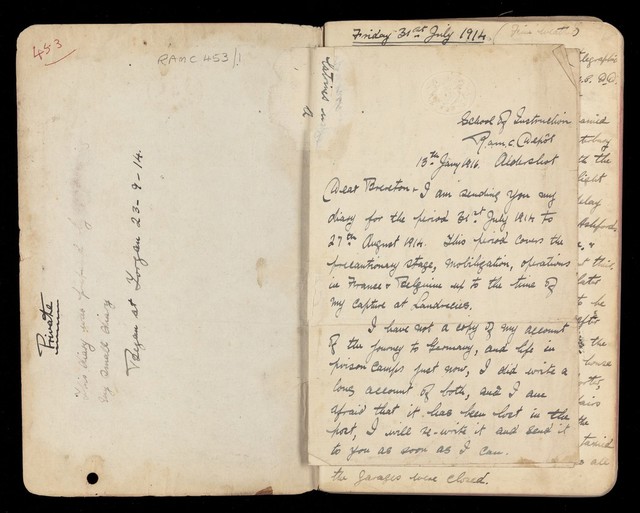 453
RAMC 453/1
Private
This diary was
my small diary
Began at Torgau 23-9-14.
Friday 31st July 1914
School of Instruction
R.a.m.c. Depôt
13th Jany 1916. Aldershot
Dear Brereton, I am sending you my
diary for the period 31st July 1914 to
27th August 1914. This period covers the
precautionary stage, mobilization, operations
in France & Belgium up to the time of
my capture at Landrecies.
I have not a copy of my account
of the journey to Germany, and life in
prison camps just now, I did write a
long account of both, and I am
afraid that it has been lost in the
post, I will re-write it and send it
to you as soon as I can.
the Garages were closed.